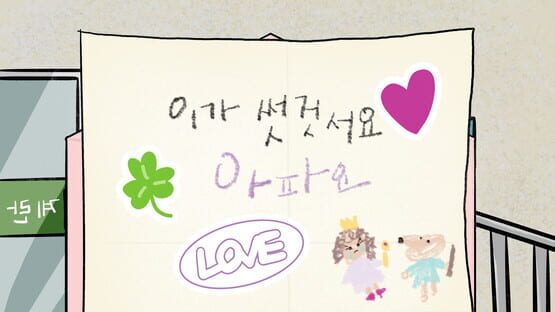 이가 썻것서요
아파요
LOVE
계란